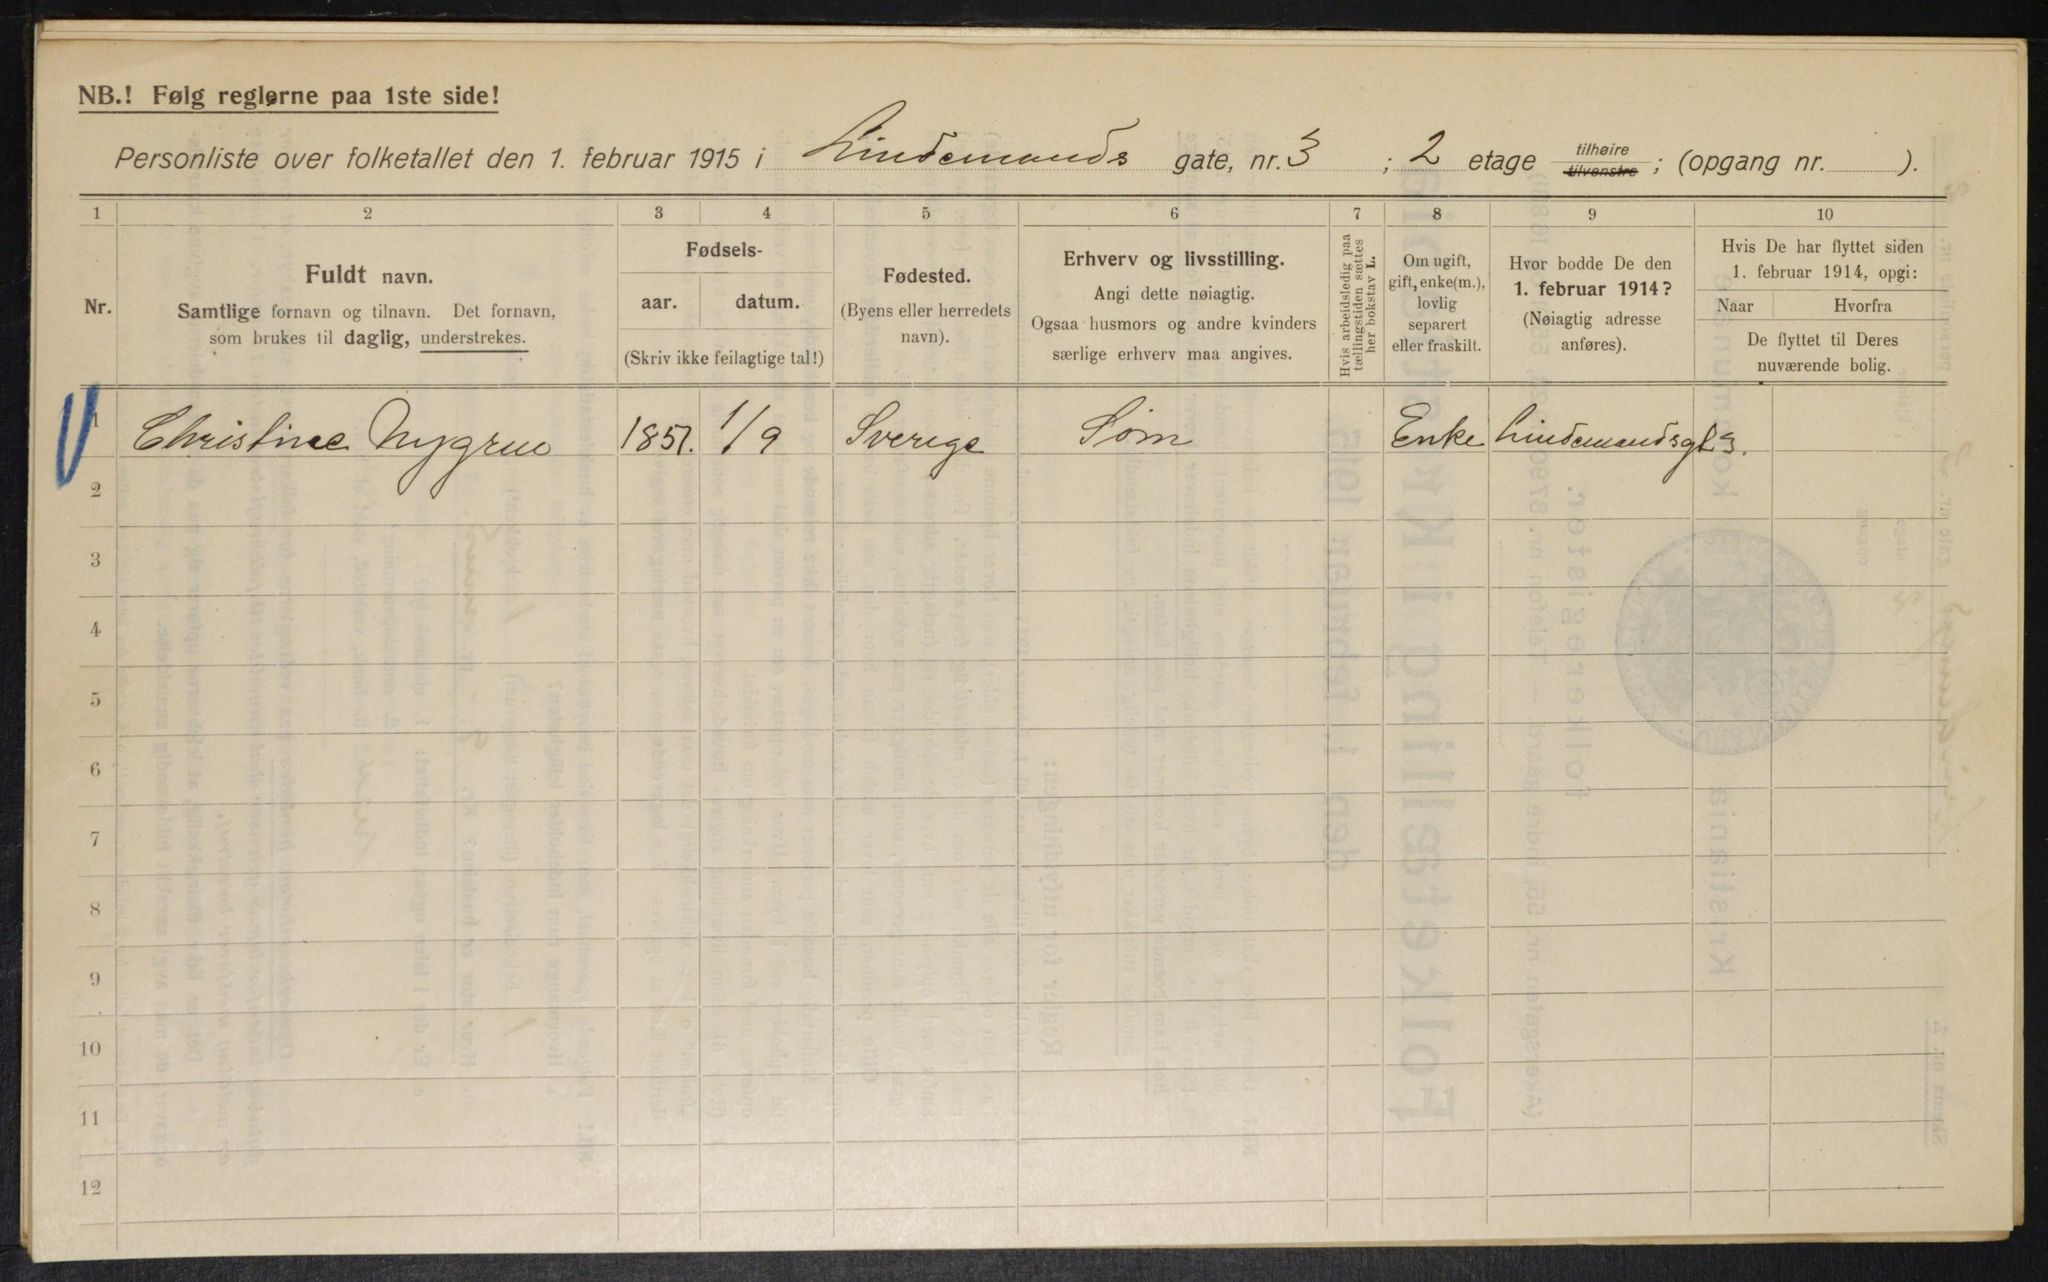 NB.! Følg reglerne paa 1ste side!
Personliste over folketallet den 1. februar 1915 i Lindemands gate, nr. 3 ; 2 etage tilhøire tilvenstre ; (opgang nr. ).
1 2 3 4 5 6 7 8 9 10
Nr.
Fuldt navn.
Samtlige fornavn og tilnavn. Det fornavn,
som brukes til daglig, understrekes.
Fødsels-
aar. datum.
(Skriv ikke feilagtige tal!)
Fødested.
(Byens eller herredets
navn).
Erhverv og livsstilling.
Angi dette nøiagtig.
Ogsaa husmors og andre kvinders
særlige erhverv maa angives.
Hvis arbeidsledig paa
tællingstiden sættes
her bokstav L.
Om ugift,
gift, enke(m.),
lovlig
separert
eller fraskilt.
Hvor bodde De den
1. februar 1914?
(Nøiagtig adresse
anføres).
Hvis De har flyttet siden
1. februar 1914, opgi:
Naar Hvorfra
De flyttet til Deres
nuværende bolig.
1 Christine Nygren 1851. 1/9 Sverige Søm Enke Lindemandsgt 3.
2
3
4
5
6
7
8
9
10
11
12